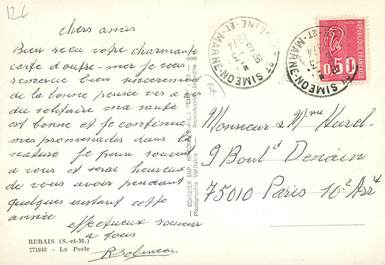 126
chers amies
Bien reçu votre charmante
carte d'outre-mer je vous
remercie bien sincèrement
de la bonne pensée vis à vis
du solitaire ma santé
est bonne et je continue
mes promenades dans la
nature je pense souvent
a vous et serai heureux
de vous avoir pendant
quelques instant cette
année
effectueux souvenir
a tous
REBAIS (S.-et-M.)
771940 - La Poste
ST SIMEON
SEINE-ET-MARNE
1974
0,50
Monsieur & Mme Hurel
9 Boult Denain
75010 Paris 10e Arrt